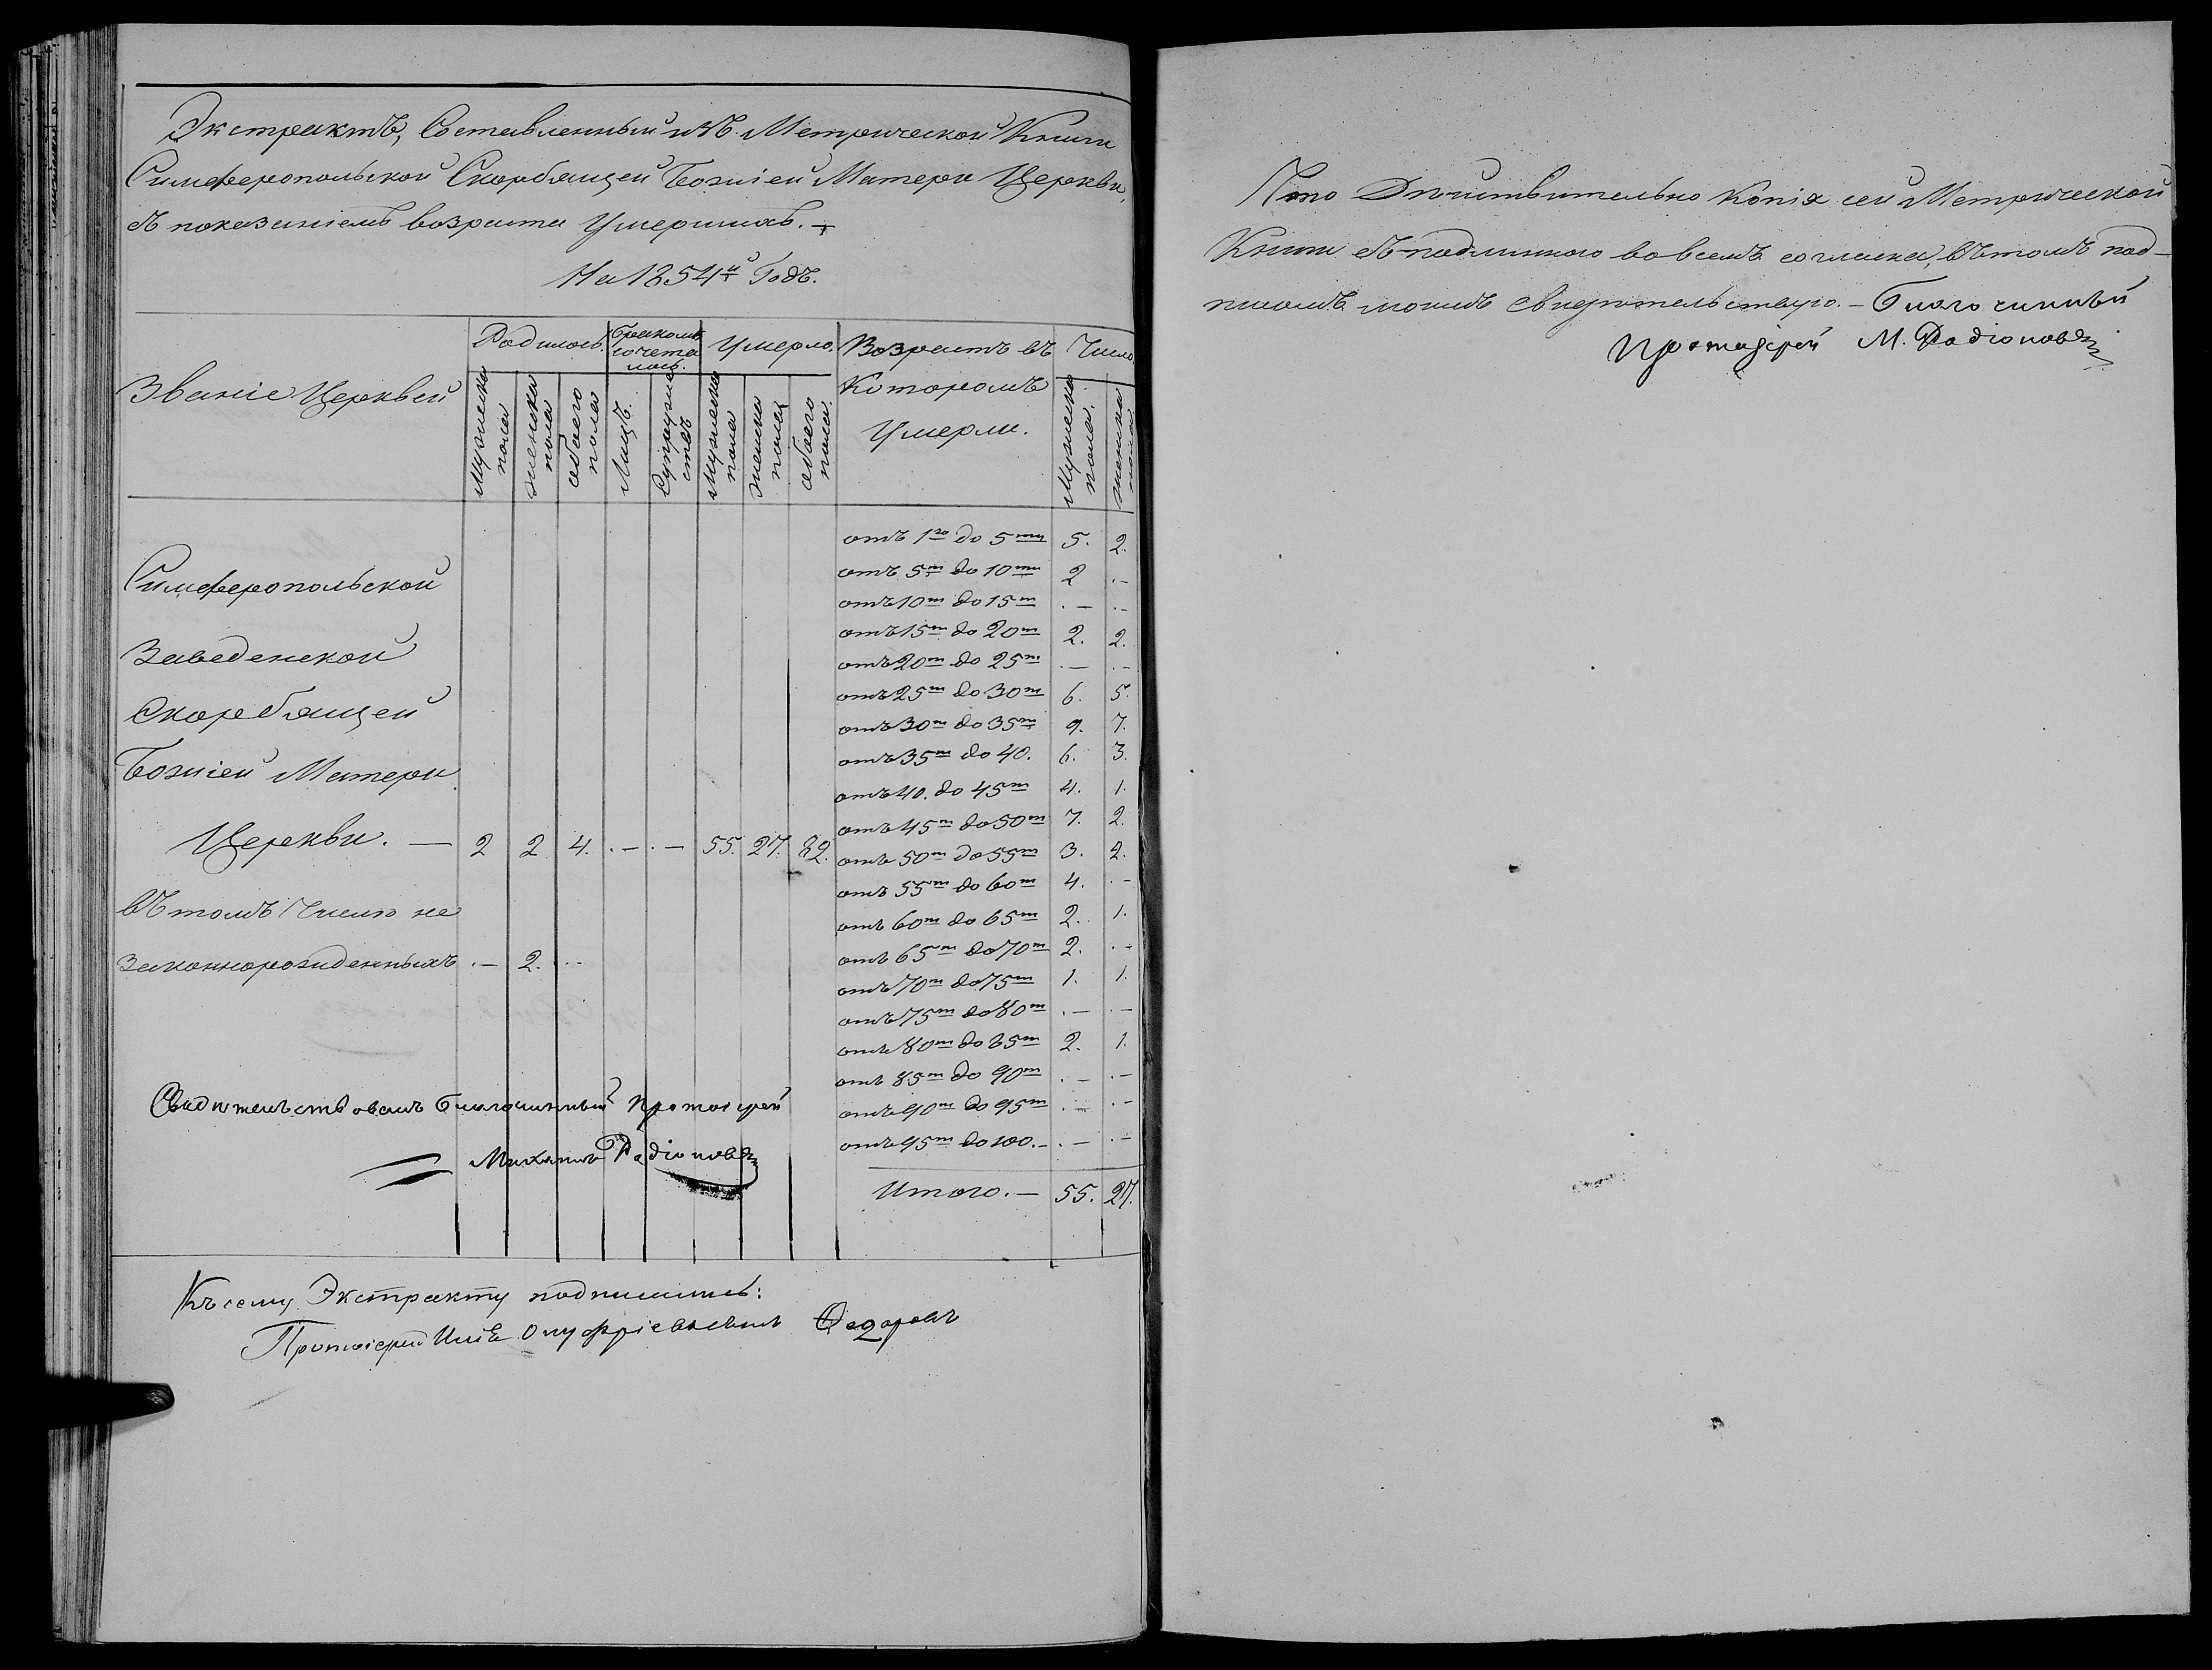 Экстрактъ, Составленный изъ Метрической Книги
Симферопольской Скорбящей Божіей Матери Церкви,
съ показаніемъ возраста Умершихъ.
На 1854й Годъ.
Званіе Церквей
Родилось.
Бракомъ сочета лось.
Умерло.
Возрастъ въ
Которомъ
Умерли.
Число
Мужеска пола
женска пола
обоего пола
Лицъ.
Супруже ствъ
Мужеска пола
женска пола
обоего пола.
Мужеска пола.
женска пола
Симферопольской
Заведенской
Скорбящей
Божіей Матери
Церкви. — 2 2 4. .— .— 55. 27. 82.
въ томъ Числѣ не
законнорожденныхъ .— 2. .—
отъ 1го до 5ти 5. 2.
отъ 5т до 10ти 2 .—
отъ 10т до 15т .— .—
отъ 15т до 20т 2. 2.
отъ 20т до 25т .— .—
отъ 25т до 30т 6. 5.
отъ 30т до 35т 9. 7.
отъ 35т до 40. 6. 3.
отъ 40. до 45т 4. 1.
отъ 45т до 50т 7. 2.
отъ 50т до 55т 3. 2.
отъ 55т до 60т 4. .—
отъ 60т до 65т 2. 1.
отъ 65т до 70т 2. .—
отъ 70т до 75т 1. 1.
отъ 75т до 80т .— .—
отъ 80т до 85т 2. 1.
отъ 85т до 90т .— .—
отъ 90т до 95т .— .—
отъ 95т до 100.— .— .—
Итого.— 55. 27.
Свидѣтельствовалъ Благочинный Протоіерей
Михаилъ Радіоновъ
Къ сему Экстракту подписались:
Протоіерей Федоровъ
Что Дѣйствительно Копія сей Метрической
Книги съ подлинною во всемъ согласна, въ томъ под-
писомъ моимъ свидѣтельствую.— Благочинный
Протоіерей М. Радіоновъ